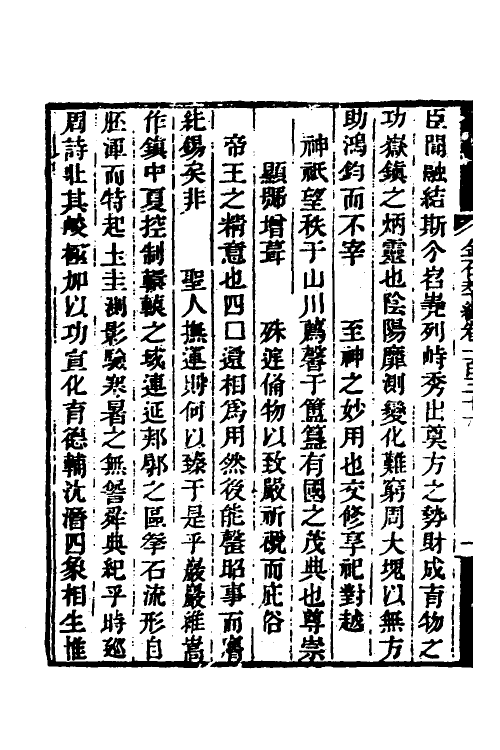 臣聞融結斯分岧嶤列峙秀出奠方之勢財成育物之
功嶽鎮之炳靈也陰陽靡測變化難窮周大塊以無方
助鴻鈞而不宰 至神之妙用也交修享祀對越
神祇望秩于山川薦馨于簠簋有國之茂典也尊崇
顯號增葺 殊庭備物以致嚴祈禩而庇俗
帝王之精意也四口遞相爲用然後能罄昭事而膺
純錫矣非 聖人撫運則何以臻于是乎巖巖維嵩
作鎮中夏控制轘轅之域連延邦郟之區拳石流形自
胚渾而特起土圭測影驗寒暑之無諐舜典紀乎時巡
周詩壯其峻極加以功宣化育德輔沈潛四象相生惟
金石萃編卷一百三十
一